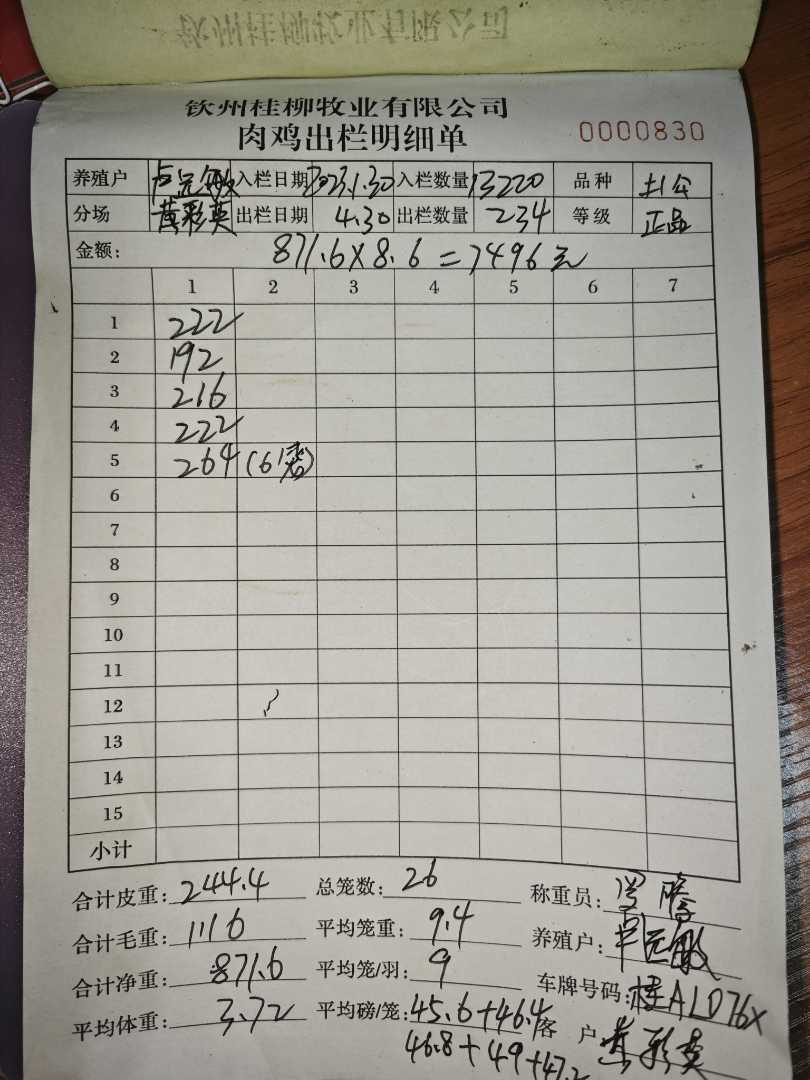 钦州桂柳牧业有限公司
肉鸡出栏明细单 0000830
养殖户 入栏日期 2023.1.30 入栏数量 13220 品种 土公
分场 黄彩英 出栏日期 4.30 出栏数量 234 等级 正品
金额: 871.6×8.6=7496元
1 2 3 4 5 6 7
1 222
2 192
3 216
4 222
5 264 (6
6
7
8
9
10
11
12
13
14
15
小计
合计皮重: 244.4 总笼数: 26 称重员:
合计毛重: 1116 平均笼重: 9.4 养殖户:
合计净重: 871.6 平均笼/羽: 9 车牌号码: 桂ALD76X
平均体重: 3.72 平均磅/笼: 45.6+46.4 客户 黄彩英
46.8+49+47.2